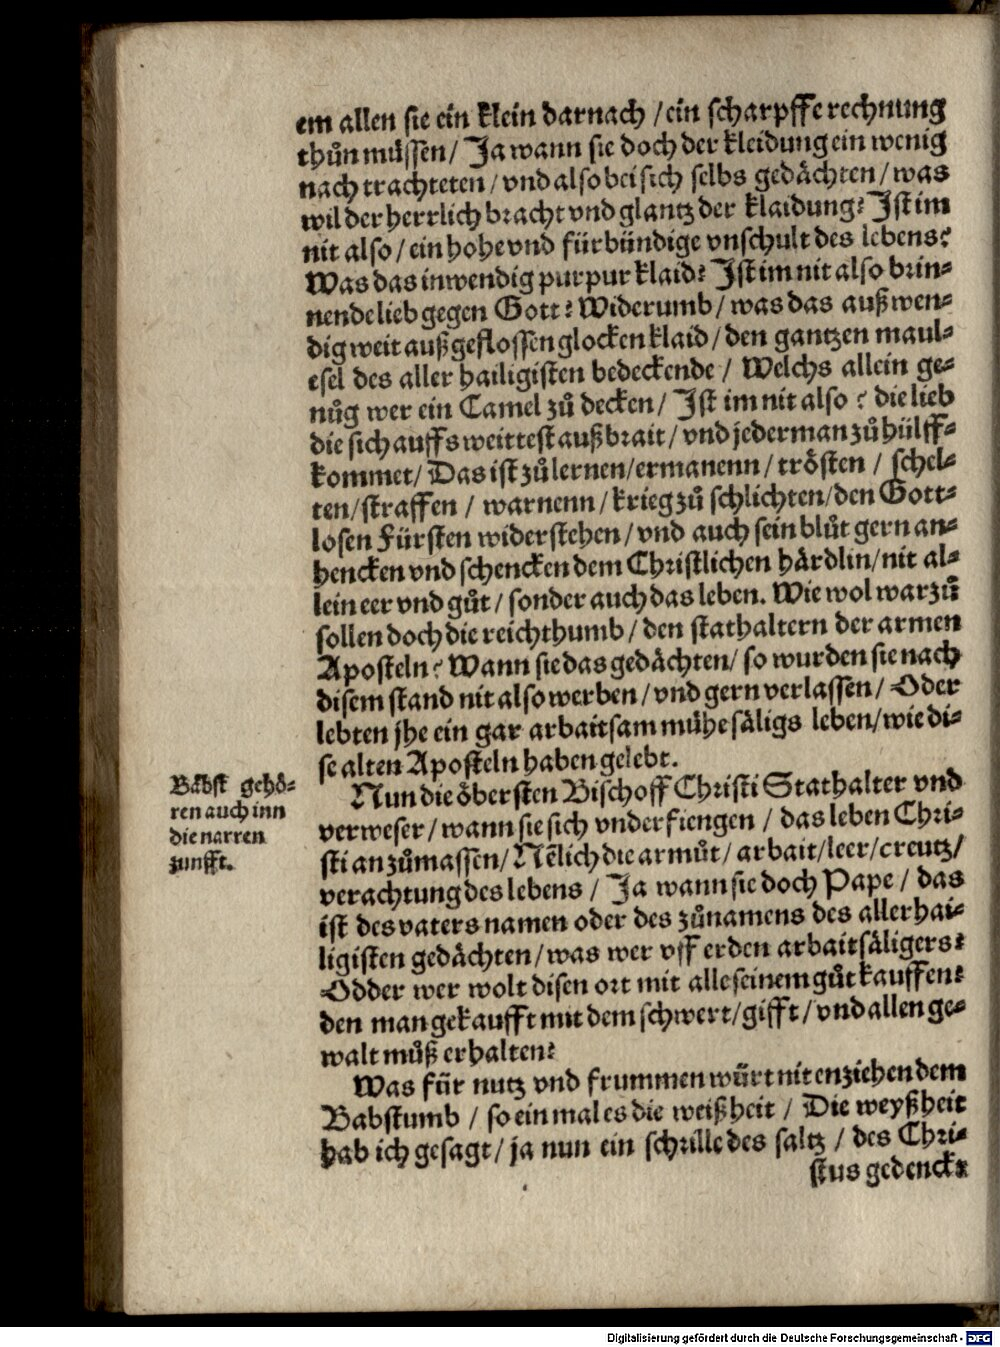 em allen sie ein klein darnach / ein scharpffe rechnung
thůn müssen / Ja wann sie doch der kleidung ein wenig
nach trachteten / vnd also bei sich selbs gedächten / was
wil der herrlich bracht vnd glantz der klaidung? Ist im
nit also / ein hohe vnd fürbündige vnschult des lebens?
Was das inwendig purpur klaid? Ist im nit also brin⸗
nende lieb gegen Gott? Widerumb / was das außwen⸗
dig weit außgeflossen glocken klaid / den gantzen maul⸗
esel des aller hailigisten bedeckende / Welchs allein ge⸗
nůg wer ein Camel zů decken / Ist im nit also? die lieb
die sich auffs weittest außbrait / vnd jederman zů hülff⸗
kommet / Das ist zů lernen / ermanenn / trösten / schel⸗
ten / straffen / warnenn / krieg zů schlichten / den Gott⸗
losen Fürsten widerstehen / vnd auch sein blůt gern an⸗
hencken vnd schencken dem Christlichen härdlin / nit al⸗
lein eer vnd gůt / sonder auch das leben. Wie wol warzů
sollen doch die reichthumb / den stathaltern der armen
Aposteln? Wann sie das gedächten / so wurden sie nach
disem stand nit also werben / vnd gern verlassen / Oder
lebten jhe ein gar arbaitsam mühesäligs leben / wie di⸗
se alten Aposteln haben gelebt.
Bäbst gehö⸗
ren auch inn
die narren
zunfft.
Nun die öbersten Bischoff Christi Stathalter vnd
verweser / wann sie sich vnderfiengen / das leben Chri⸗
sti anzůmassen / Nẽlich die armůt / arbait / leer / creutz /
verachtung des lebens / Ja wann sie doch Pape / das
ist des vaters namen oder des zůnamens des allerhai⸗
ligisten gedächten / was wer vff erden arbaitsäligers?
Odder wer wolt disen ort mit alle seinem gůt kauffen?
den man gekaufft mit dem schwert / gifft / vnd allen ge⸗
walt můß erhalten?
Was für nutz vnd frummen würt nit enziehen dem
Babstumb / so ein mal es die weißheit / Die weyßheit
hab ich gesagt / ja nun ein schrille des saltz / des Chri⸗
stus gedenckt
Digitalisierung gefördert durch die Deutsche Forschungsgemeinschaft - DFG